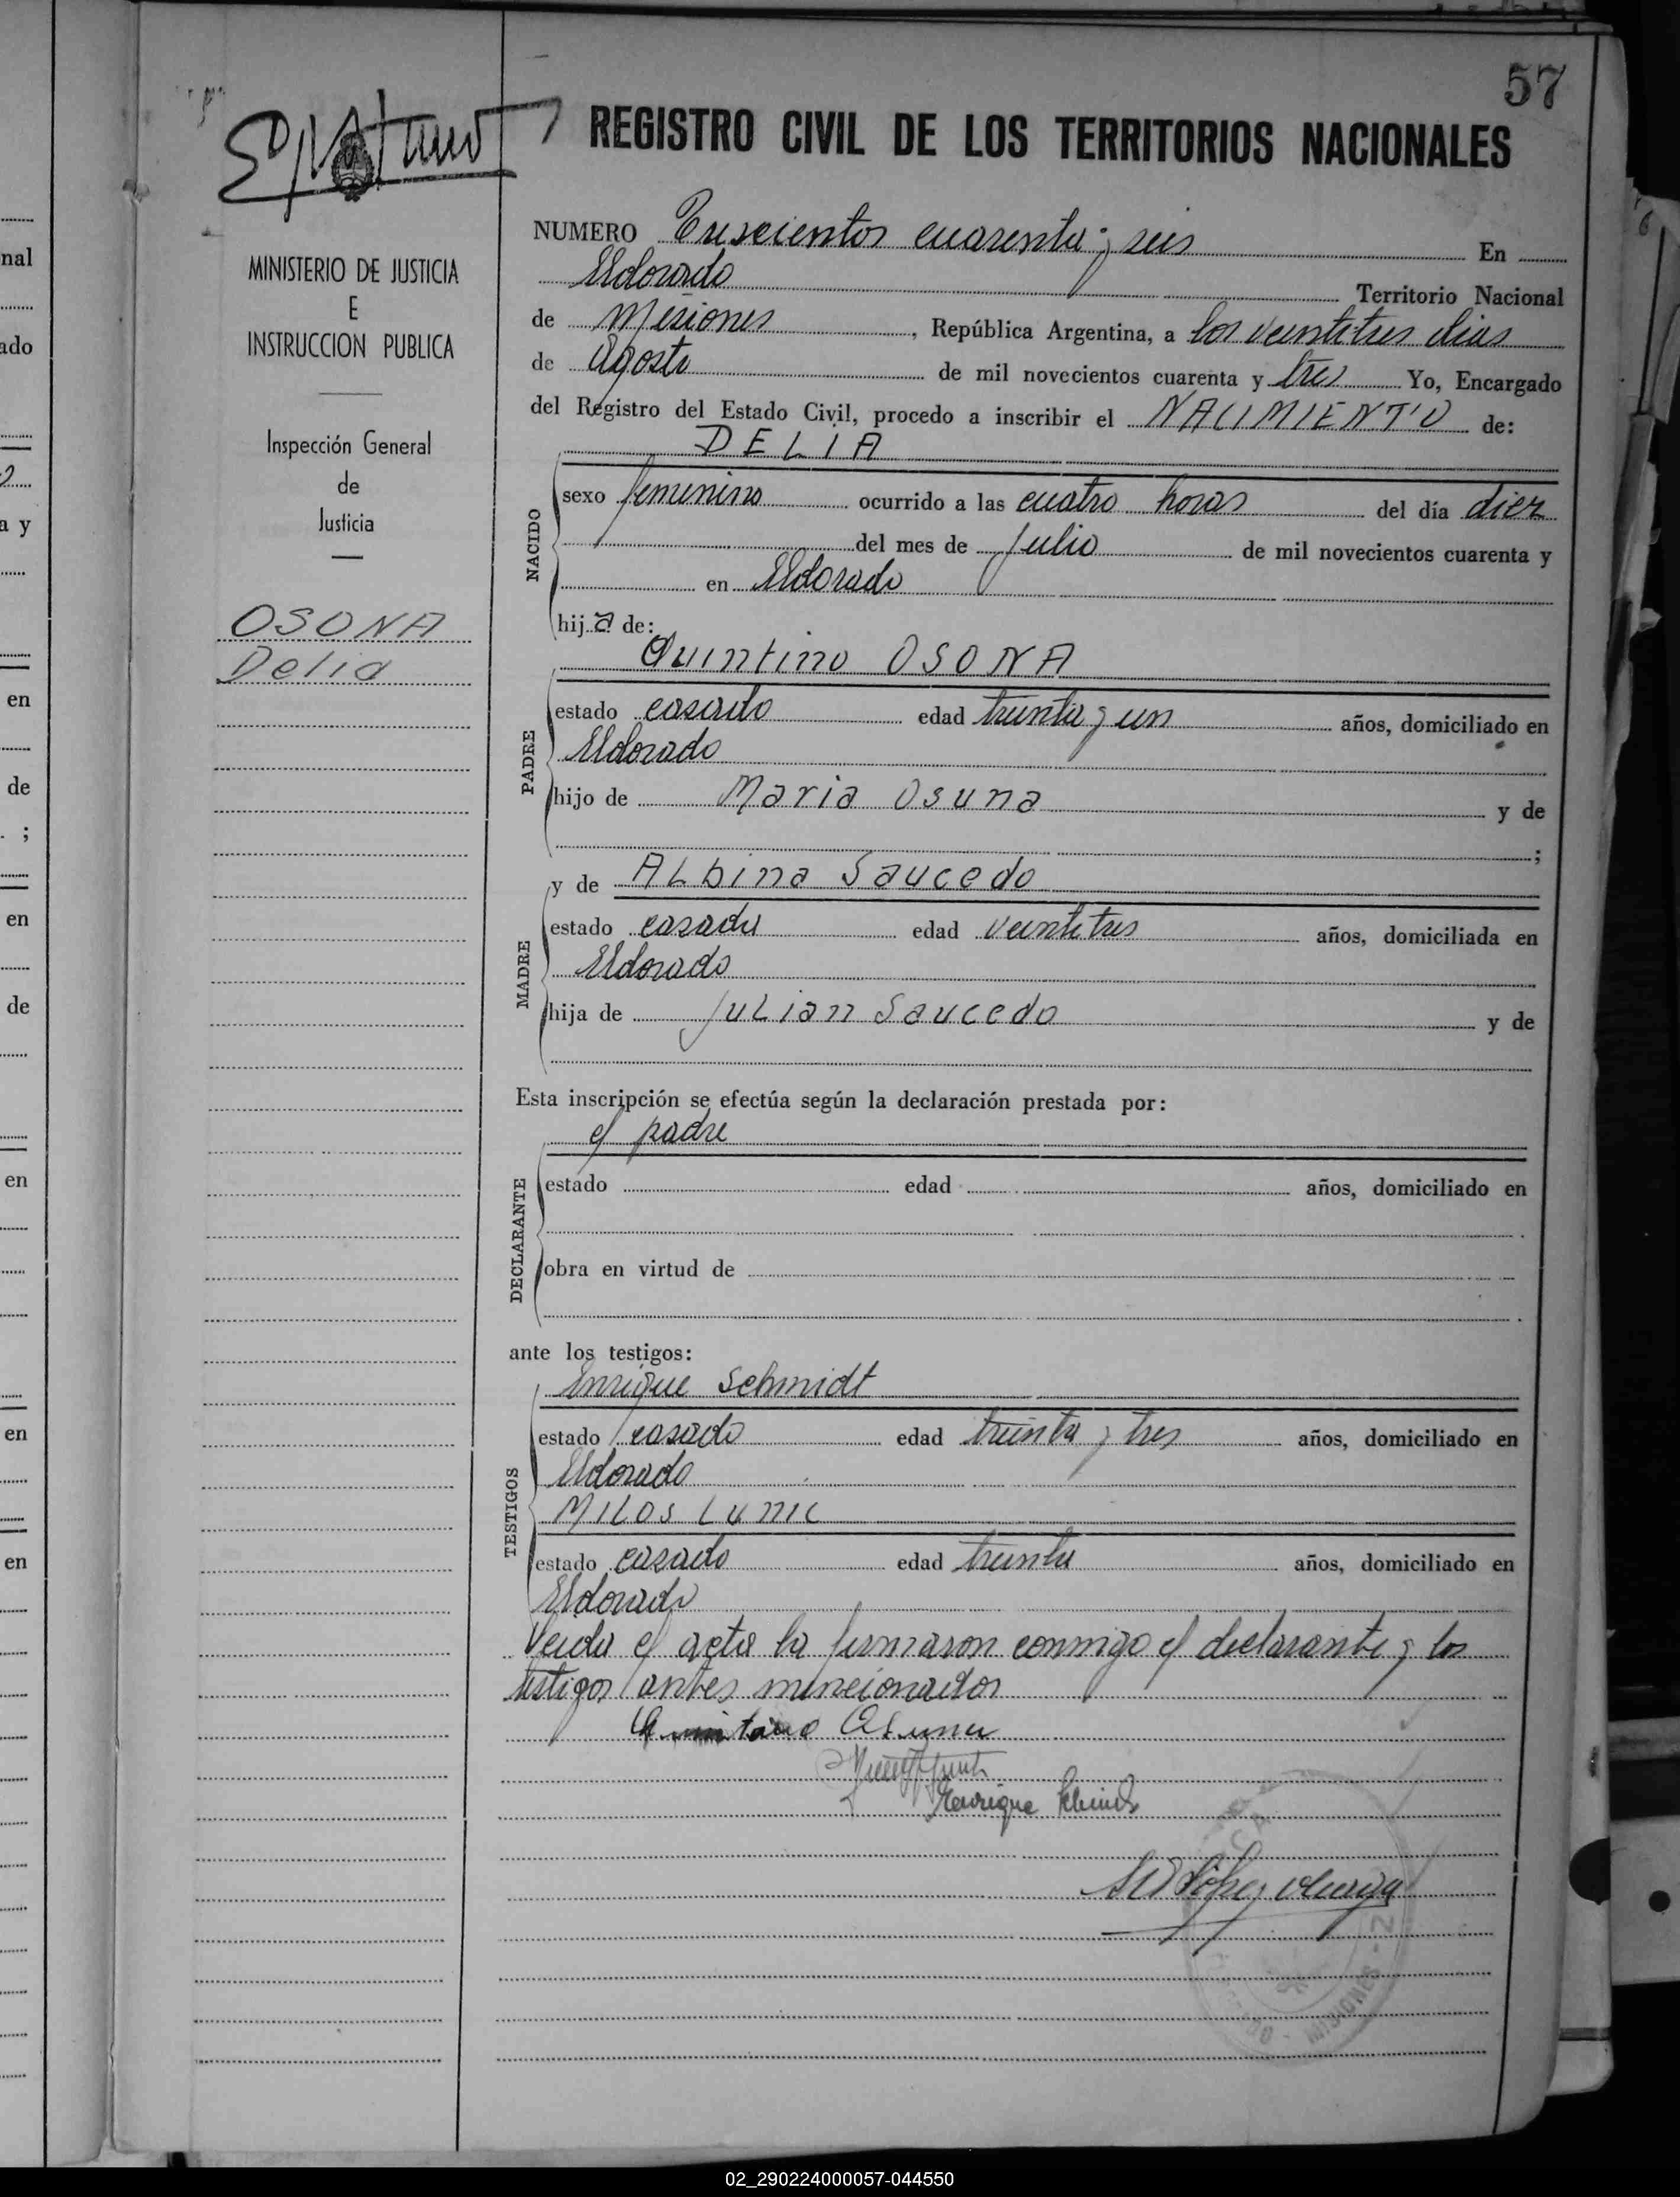 57
REGISTRO CIVIL DE LOS TERRITORIOS NACIONALES
MINISTERIO DE JUSTICIA
E
INSTRUCCION PUBLICA
Inspección General
de
Justicia
OSONA
Delia
NUMERO Trescientos cuarenta y seis En
Eldorado Territorio Nacional
de Misiones, República Argentina, a los veintitres dias
de Agosto de mil novecientos cuarenta y tres Yo, Encargado
del Registro del Estado Civil, procedo a inscribir el NACIMIENTO de:
DELIA
NACIDO
sexo femenino ocurrido a las cuatro horas del día diez
del mes de Julio de mil novecientos cuarenta y
en Eldorado
hija de:
Quintino OSONA
PADRE
estado casado edad treinta y un años, domiciliado en
Eldorado
hijo de Maria Osuna y de
;
y de ALbina Saucedo
MADRE
estado casada edad veintitres años, domiciliada en
Eldorado
hija de JuLian Saucedo y de
Esta inscripción se efectúa según la declaración prestada por:
el padre
DECLARANTE
estado edad años, domiciliado en
obra en virtud de
ante los testigos:
Enrique Schmidt
TESTIGOS
estado casado edad treinta y tres años, domiciliado en
Eldorado
MILOS LUNIC
estado casado edad treinta años, domiciliado en
Eldorado
Leida el acta la firmaron conmigo el declarante y los
testigos antes mencionados
Osuna
Enrique
MISIONES
nal
ado
a y
en
de
;
en
de
en
en
en
02_290224000057-044550